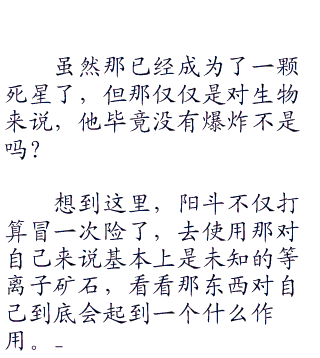 虽然那已经成为了一颗
死星了，但那仅仅是对生物
来说，他毕竟没有爆炸不是
吗？
想到这里，阳斗不仅打
算冒一次险了，去使用那对
自己来说基本上是未知的等
离子矿石，看看那东西对自
己到底会起到一个什么作
用。_